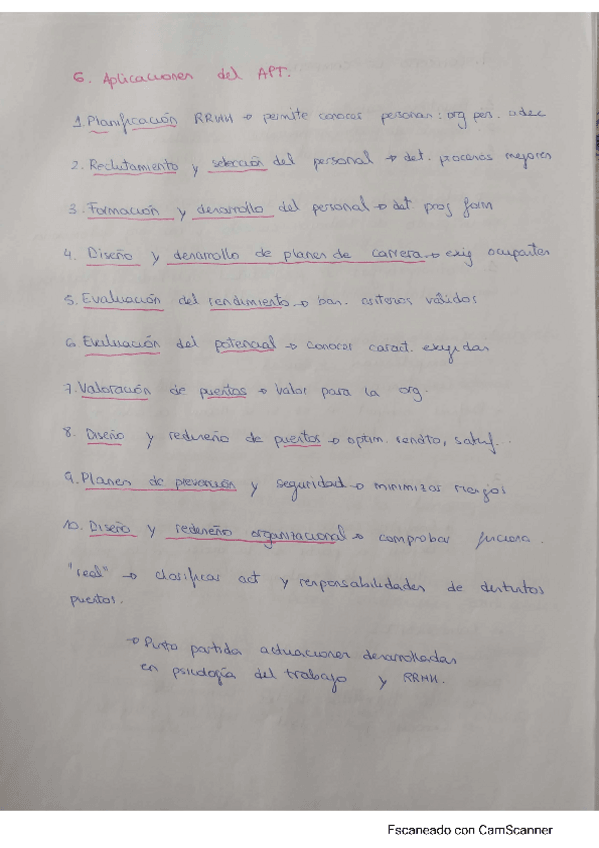 6. Aplicaciones del APT.
1. Planificación RRHH → permite conocer personas: org per. adec
2. Reclutamiento y selección del personal → det. procesos mejores
3. Formación y desarrollo del personal → det. prog form
4. Diseño y desarrollo de planes de carrera → exig ocupantes
5. Evaluación del rendimiento → bas. criterios válidos
6. Evaluación del potencial → conocer caract. exigidas
7. Valoración de puestos → valor para la org.
8. Diseño y rediseño de puestos → optim. rendto, satisf...
9. Planes de prevención y seguridad → minimizar riesgos
10. Diseño y rediseño organizacional → comprobar funciona.
"real" → clasificar act y responsabilidades de distintos
puestos.
→ Punto partida actuaciones desarrolladas
en psicología del trabajo y RRHH.
Escaneado con CamScanner